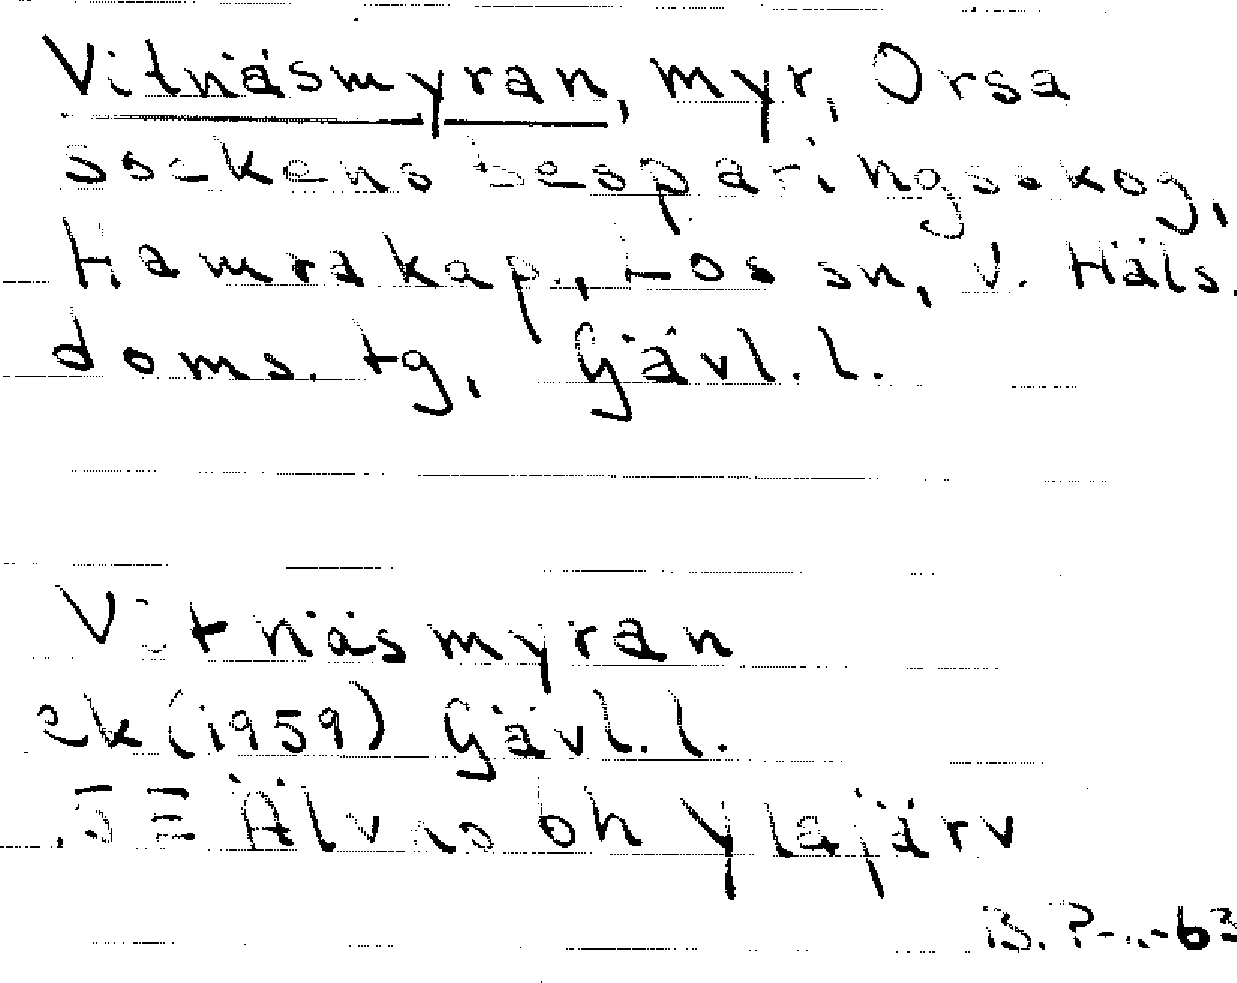 Vitnäsmyran, myr, Orsa
sockens besparingsskog,
Hamra kap., Los sn, V. Häls.
doms. tg, Gävl. l.
Vitnäsmyran
ek (1959) Gävl. l.
SE Älvho oh Ylajärv